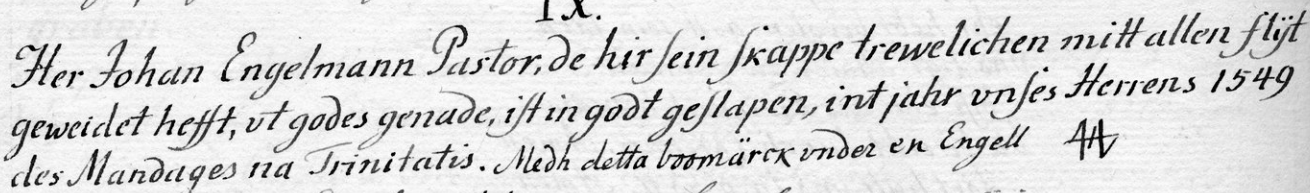 IX.
Her Johan Engelmann Pastor, de hir sein skappe trewelichen mitt allen flijt
geweidet hefft, vt godes genade, ist in godt geslapen, int jahr vnses Herrens 1549
des Mandages na Trinitatis. Medh detta boomärck vnder en Engell